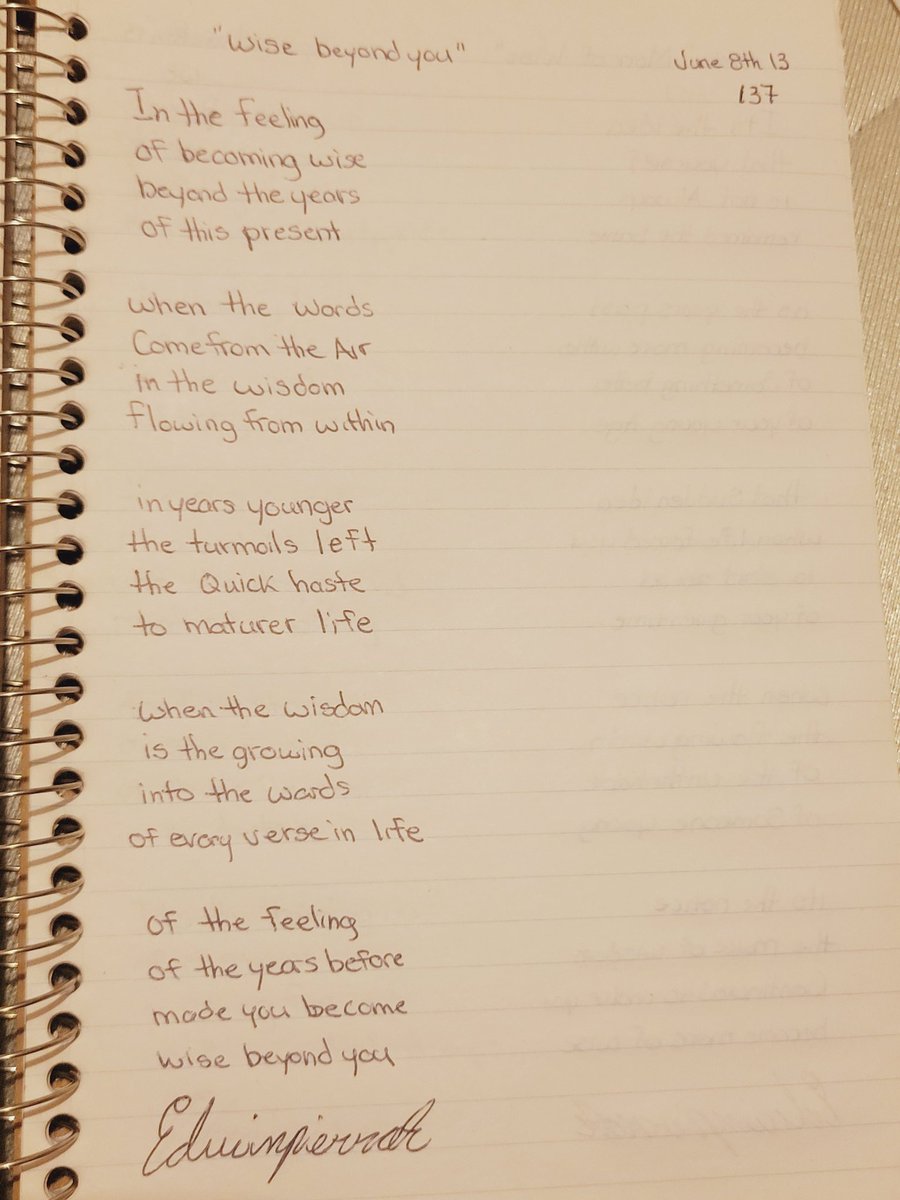 "Wise beyond you"
June 8th 13
137
In the feeling
of becoming wise
beyond the years
of this present
when the words
Come from the Air
in the wisdom
flowing from within
in years younger
the turmoils left
the Quick haste
to maturer life
when the wisdom
is the growing
into the words
of every verse in life
of the feeling
of the years before
made you become
wise beyond you